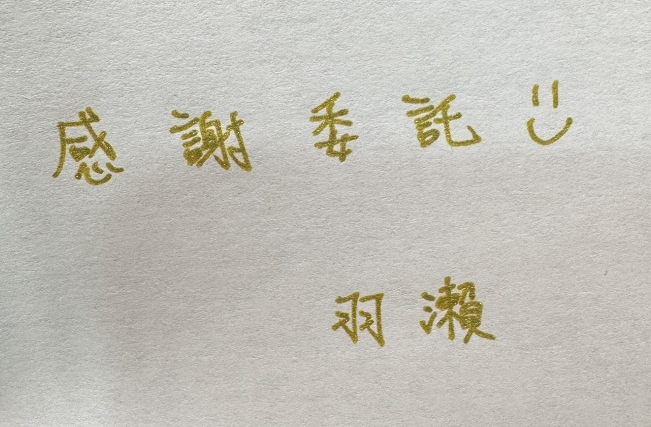 感謝委託 :)
羽瀨